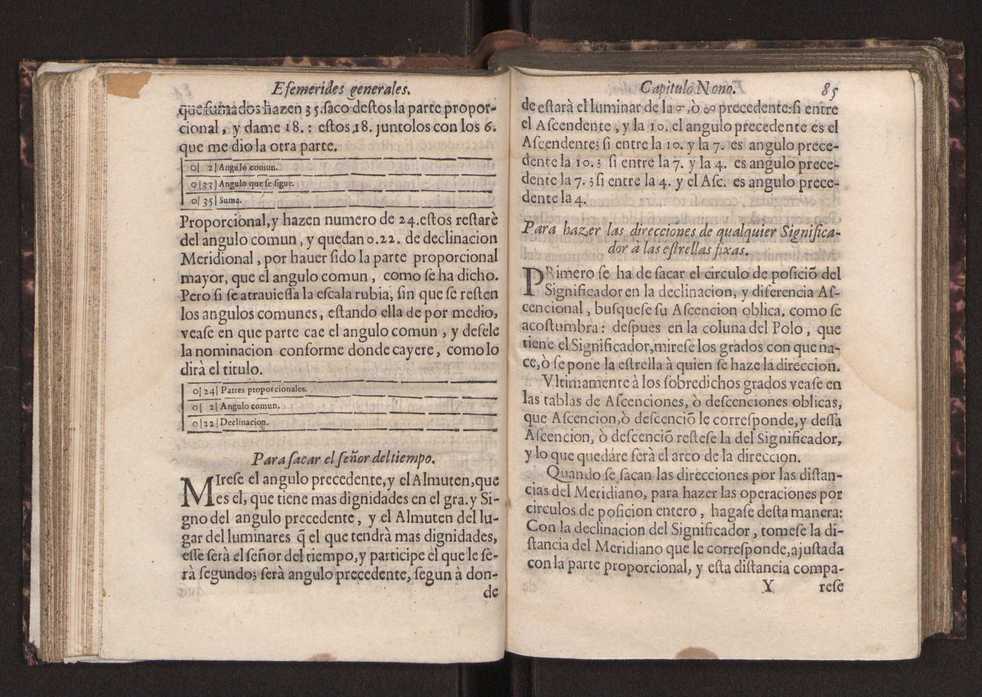 Efemerides generales.
que sumados hazen 35. saco destos la parte propor-
cional, y dame 18.: estos, 18. juntolos con los 6.
que me dio la otra parte.
0| 2| Angulo comun.
0|33| Angulo que se sigue.
0| 35| Suma.
Proporcional, y hazen numero de 24. estos restarè
del angulo comun, y quedan 0.22. de declinacion
Meridional, por hauer sido la parte proporcional
mayor, que el angulo comun, como se ha dicho.
Pero si se atrauiessa la escala rubia, sin que se resten
los angulos comunes, estando ella de por medio,
vease en que parte cae el angulo comun, y desele
la nominacion conforme donde cayere, como lo
dirà el titulo.
0|24| Partes proporcionales.
0| 2| Angulo comun.
0|22| Declinacion.
Para sacar el señor del tiempo.
MIrese el angulo precedente, y el Almuten, que
es el, que tiene mas dignidades en el gra. y Si-
gno del angulo precedente, y el Almuten del lu-
gar del luminares q̃ el que tendrà mas dignidades,
esse serà el señor del tiempo, y participe el que le se-
rà segundo; serà angulo precedente, segun à don-
de
Capitulo Nono. 85
de estarà el luminar de la ☌, ò ☍ precedente: si entre
el Ascendente, y la 10. el angulo precedente es el
Ascendente; si entre la 10. y la 7. es angulo prece-
dente la 10.; si entre la 7. y la 4. es angulo prece-
dente la 7.; si entre la 4. y el Asc. es angulo prece-
dente la 4.
Para hazer las direcciones de qualquier Significa-
dor à las estrellas fixas.
PRimero se ha de sacar el circulo de posiciõ del
Significador en la declinacion, y diferencia As-
cencional, busquese su Ascencion oblica, como se
acostumbra: despues en la coluna del Polo, que
tiene el Significador, mirese los grados con que na-
ce, ò se pone la estrella à quien se haze la direccion.
Vltimamente à los sobredichos grados vease en
las tablas de Ascenciones, ò descenciones oblicas,
que Ascencion, ò descenciõ le corresponde, y dessa
Ascencion, ò descenciõ restese la del Significador,
y lo que quedàre serà el arco de la direccion.
Quando se sacan las direcciones por las distan-
cias del Meridiano, para hazer las operaciones por
circulos de posicion entero, hagase desta manera:
Con la declinacion del Significador, tomese la di-
stancia del Meridiano que le corresponde, ajustada
con la parte proporcional, y esta distancia compa-
Y rese